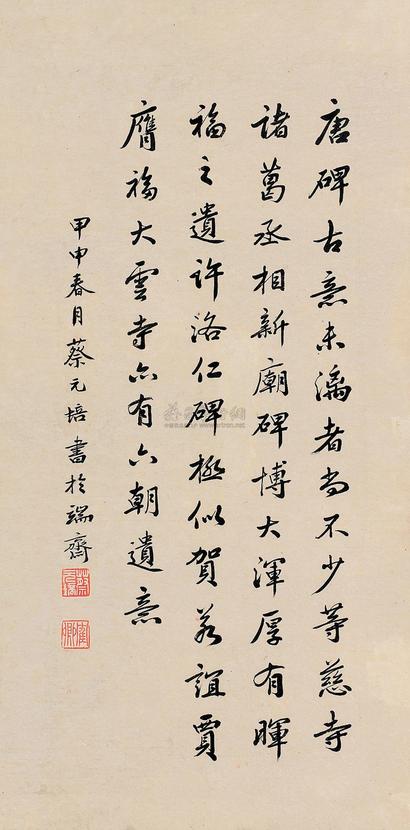 唐碑古意未漓者尚不少等慈寺
諸葛丞相新廟碑博大渾厚有暉
福之遺許洛仁碑極似賀若誼賈
膺福大雲寺亦有六朝遺意
甲申春月蔡元培書於端齋